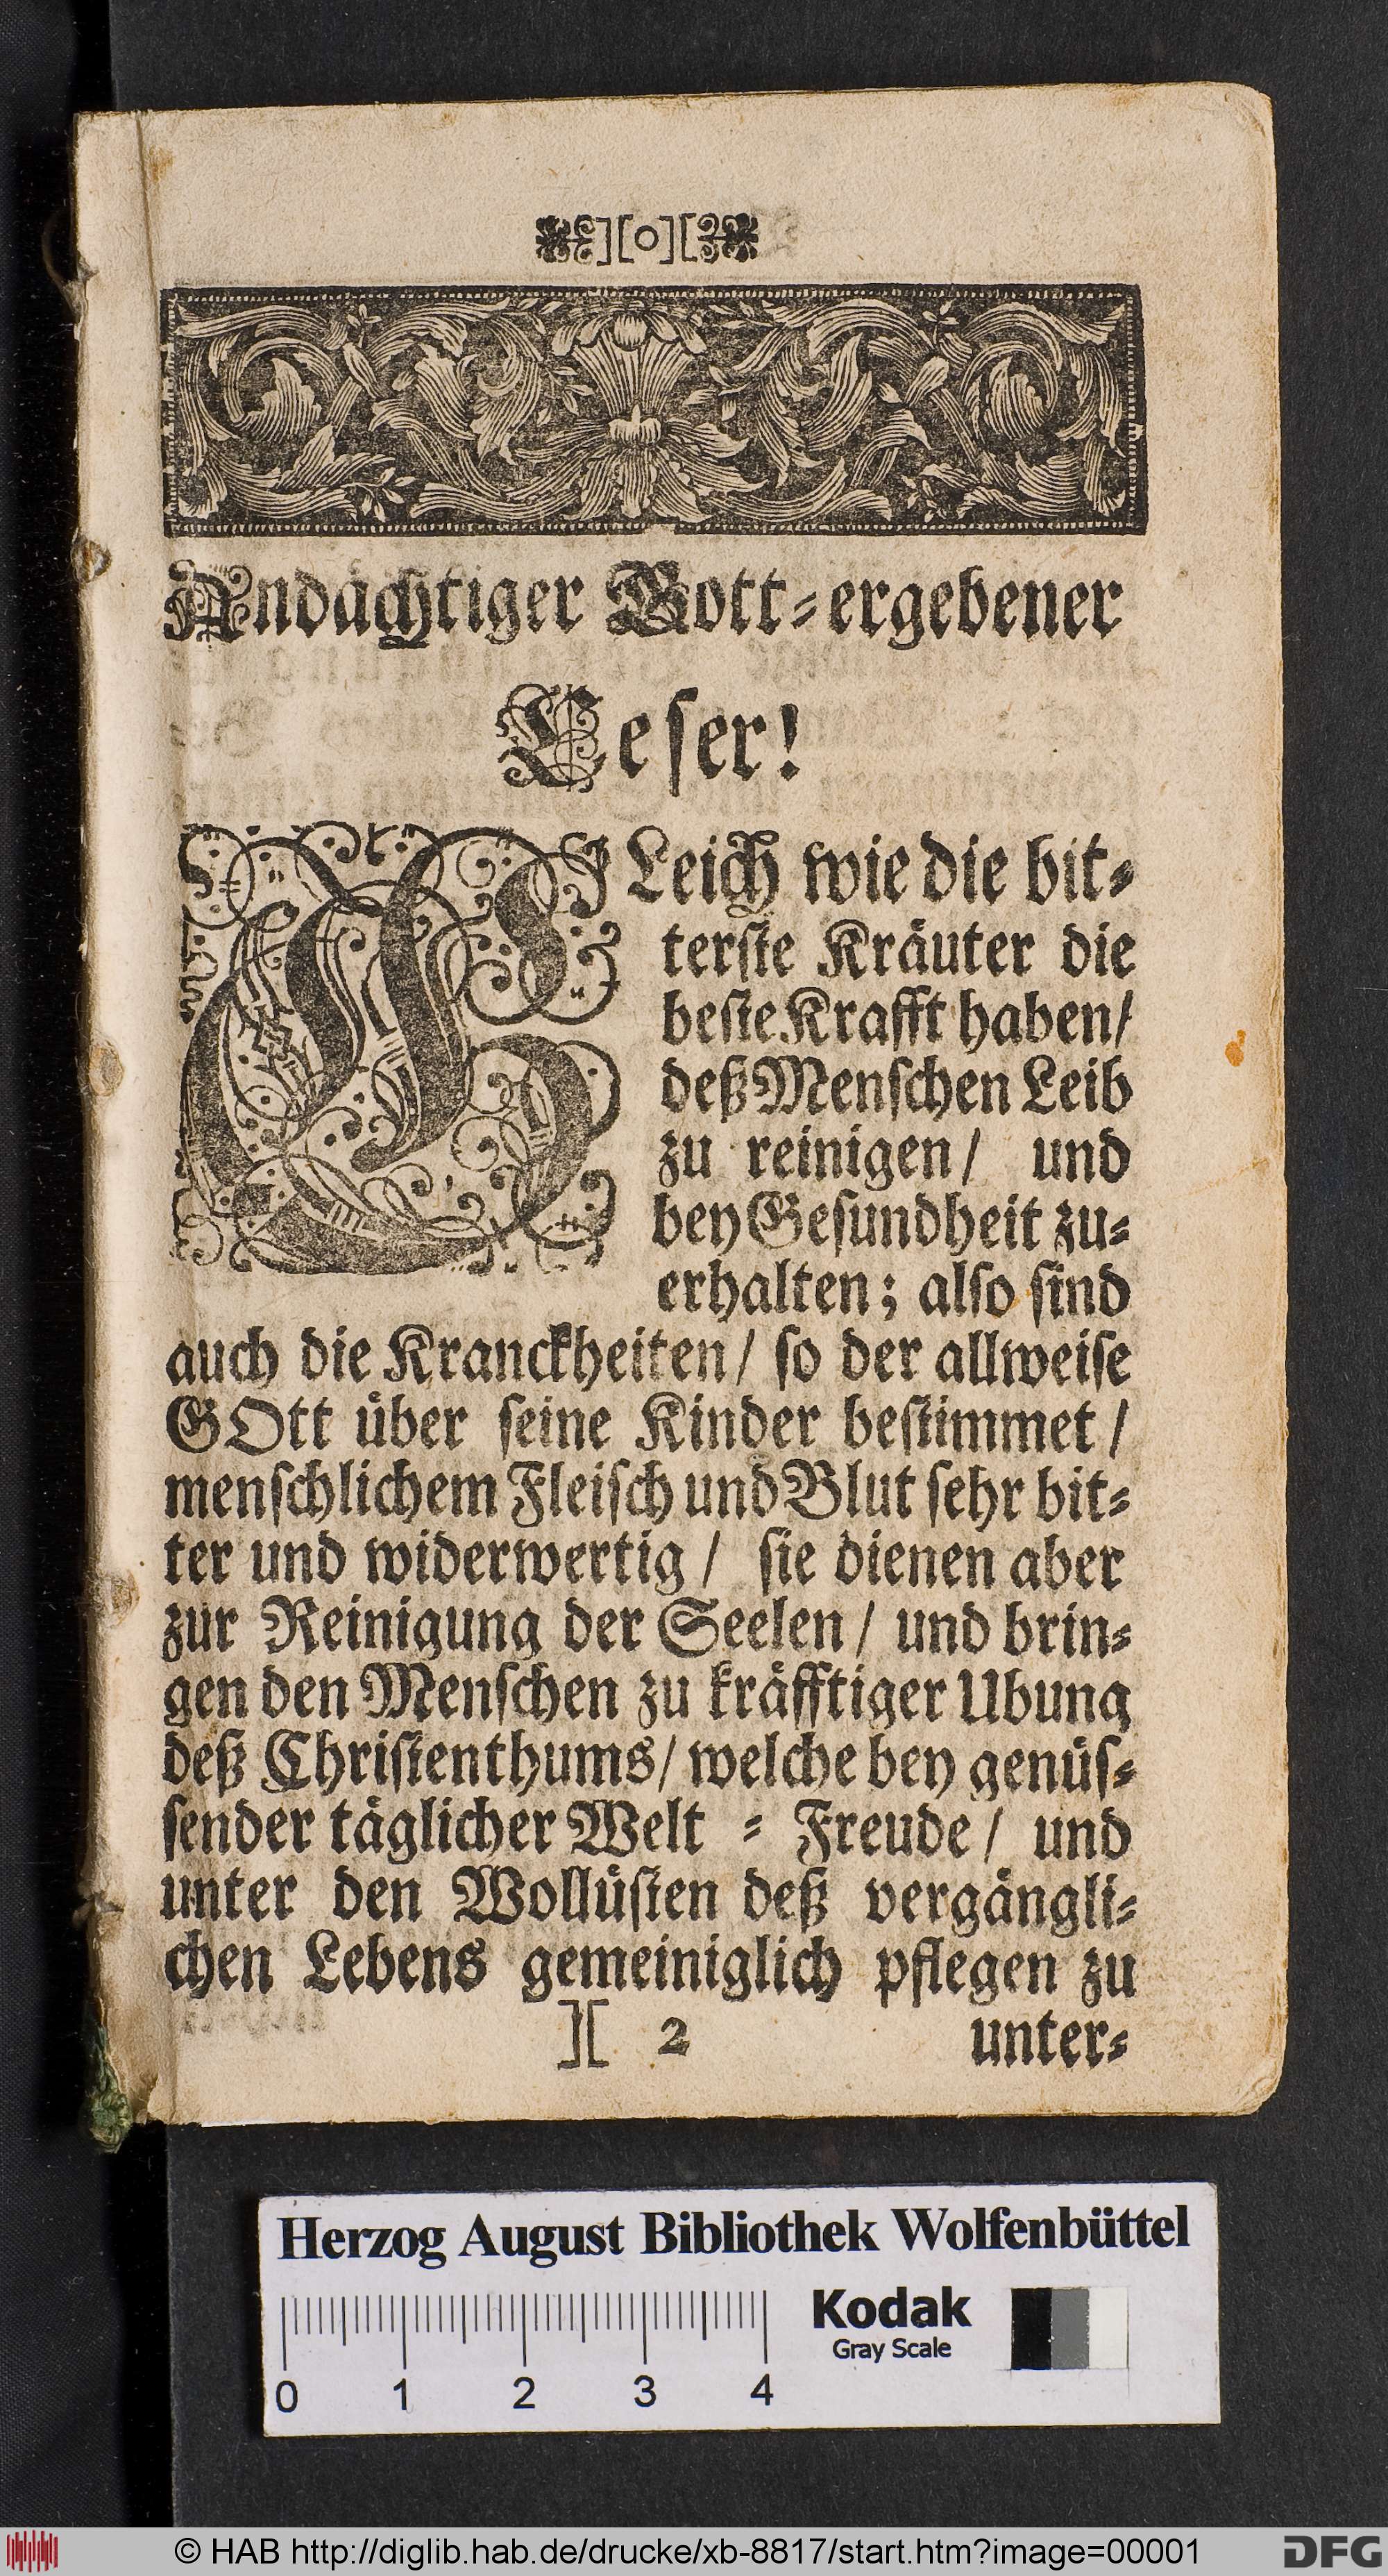 ][o][
Andächtiger Gott-ergebener
Leser!
GLeich wie die bit-
terſte Kräuter die
beſte Krafft haben/
deß Menſchen Leib
zu reinigen/ und
bey Geſundheit zu-
erhalten; alſo ſind
auch die Kranckheiten/ ſo der allweiſe
GOtt über ſeine Kinder beſtimmet/
menſchlichem Fleiſch und Blut ſehr bit-
ter und widerwertig/ ſie dienen aber
zur Reinigung der Seelen/ und brin-
gen den Menſchen zu kräfftiger Ubung
deß Chriſtenthums/ welche bey genüſ-
ſender täglicher Welt - Freude/ und
unter den Wollüſten deß vergängli-
chen Lebens gemeiniglich pflegen zu
][ 2 unter-
Herzog August Bibliothek Wolfenbüttel
Kodak
Gray Scale
0 1 2 3 4
© HAB http://diglib.hab.de/drucke/xb-8817/start.htm?image=00001
DFG